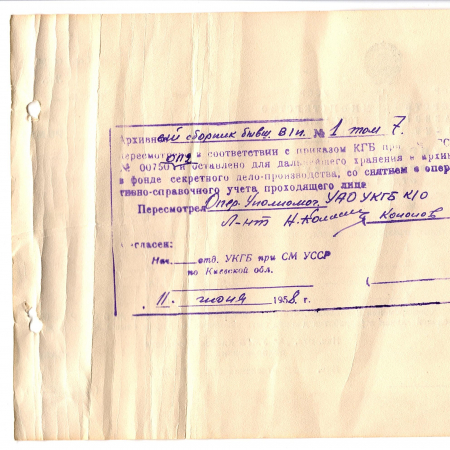 Архивный сборник бывш. В/п. № 1 том 7.
пересмотрен в соответствии с приказом КГБ при
№ 00750 и оставлено для дальнейшего хранения в архив
в фонде секретного дело-производства, со снятием в опер
тивно-справочного учета проходящего лица
Пересмотрел Опер. Уполномоч. УАО УКГБ К/О
Л-нт Кононов
Согласен:
Нач. отд. УКГБ при СМ УССР
по Киевской обл.
11. июня 1958. г.